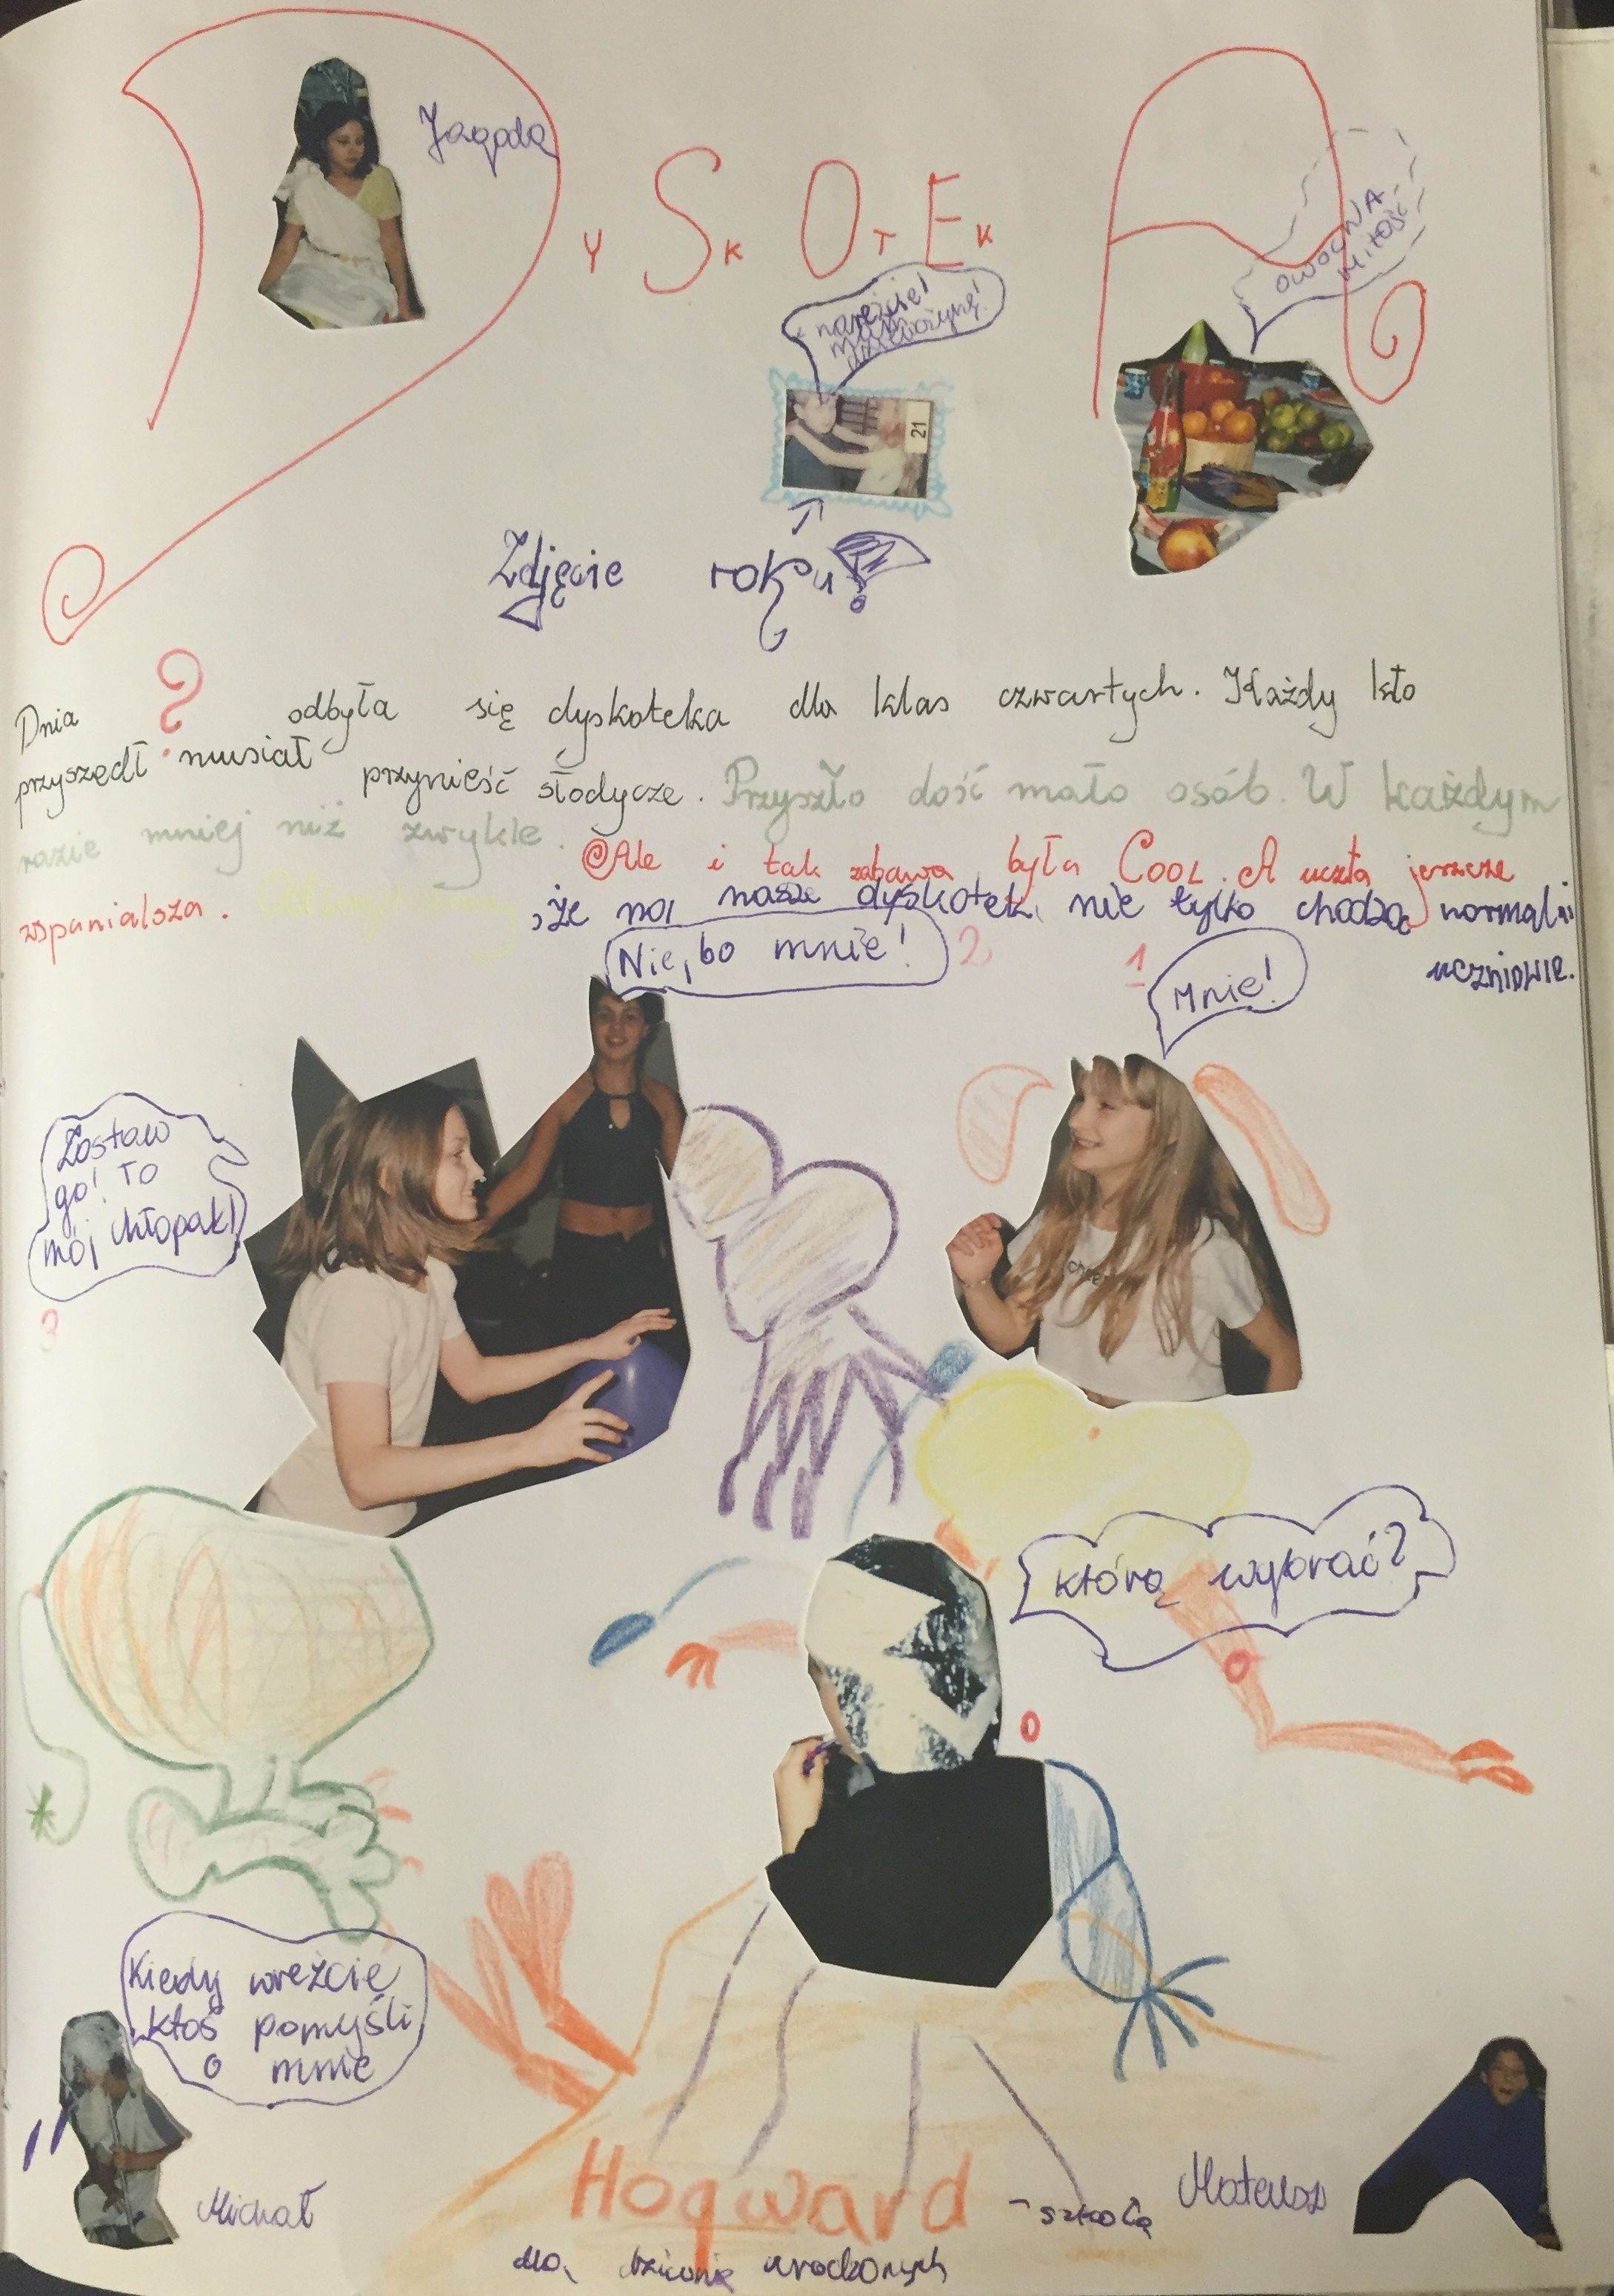 DYSKOTEKA
Jagoda
OWOCNA
MIŁOŚĆ
nareźcie!
mam
dziewczynę!
21
Zdjęcie roku!
Dnia ? odbyła się dyskoteka dla klas czwartych. Każdy kto
przyszedł musiał przynieść słodycze. Przyszło dość mało osób. W każdym
razie mniej niż zwykle. Ale i tak zabawa była COOL. A uczta jeszcze
wspanialsza. , że na nasze dyskotek nie tylko chodzą normalni
uczniowie.
Nie, bo mnie! 2
1 Mnie!
Zostaw
go! TO
mój chłopak!
3
cheer
którą wybrać?
Kiedy wreźcie
ktoś pomyśli
o mnie
Michał
Mateusz
Hogward - szkoła
dla dziwnie urodzonych